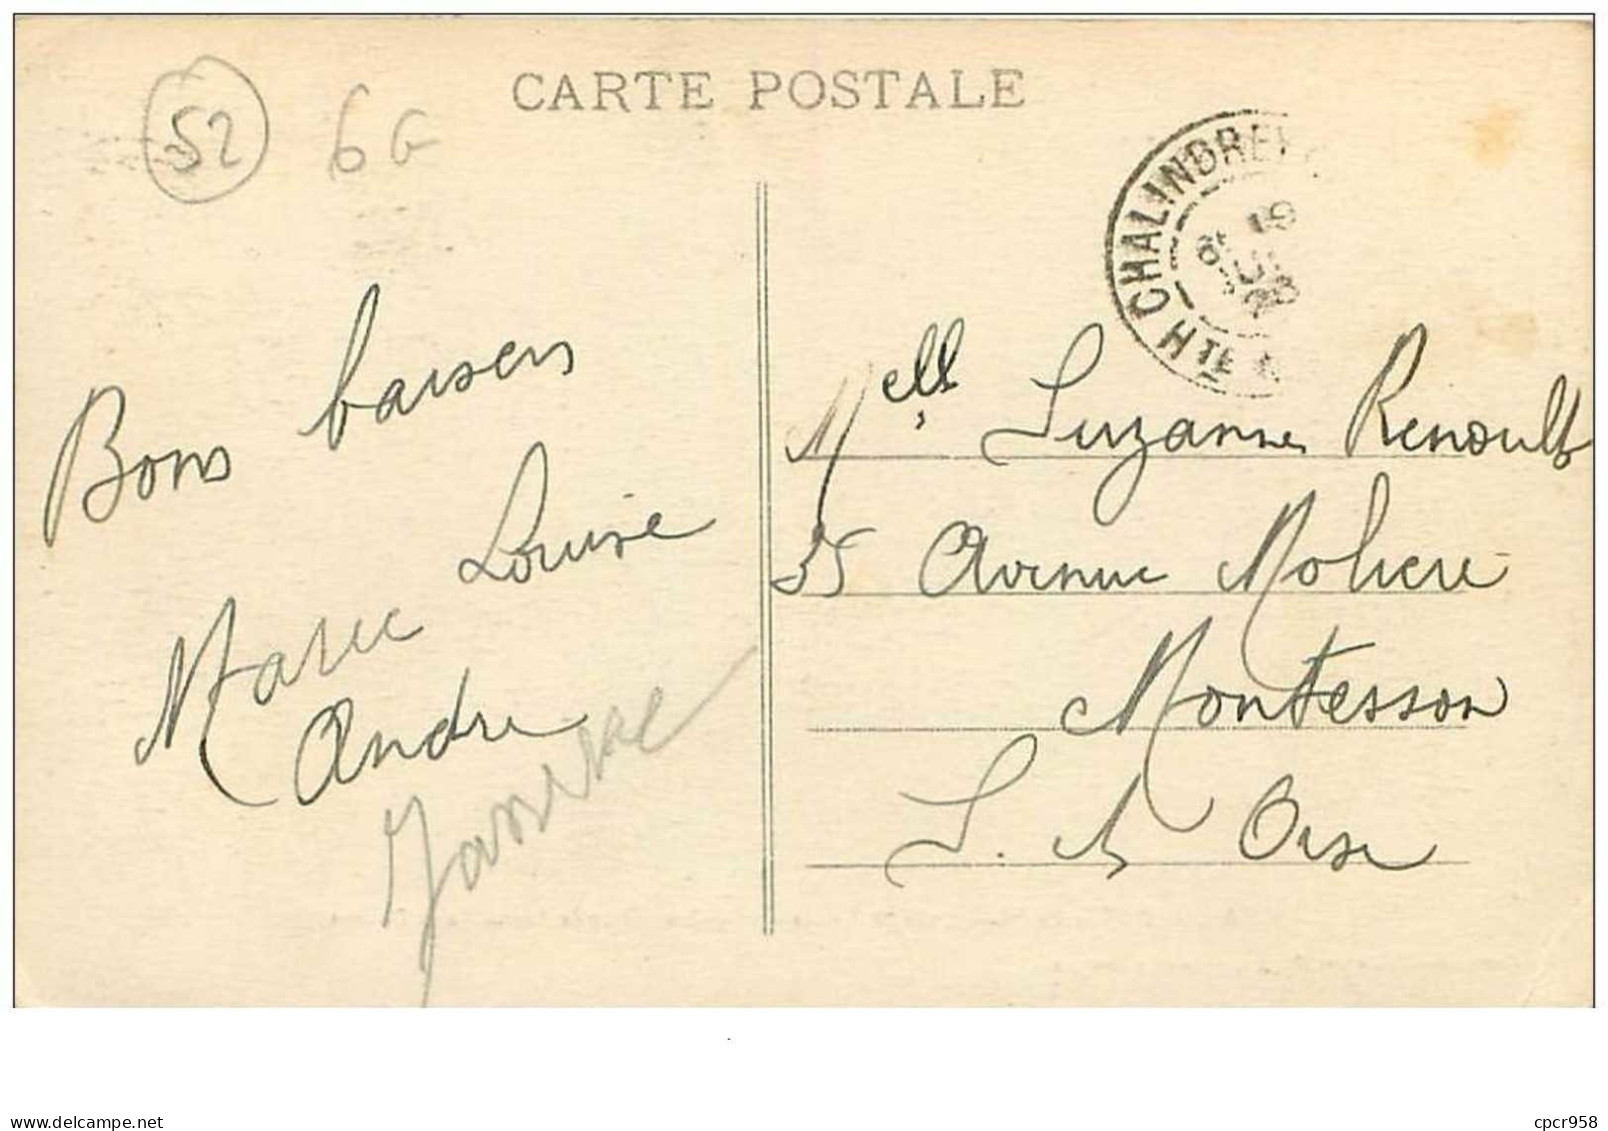 CARTE POSTALE
52 6G
CHALINDREY
Hte M
19
Bons baisers
Marie Louise
Andre
Melle Suzanne Renoult
35 Avenue Moliere
Montesson
S. et Oise
delcampe.net
cpcr958